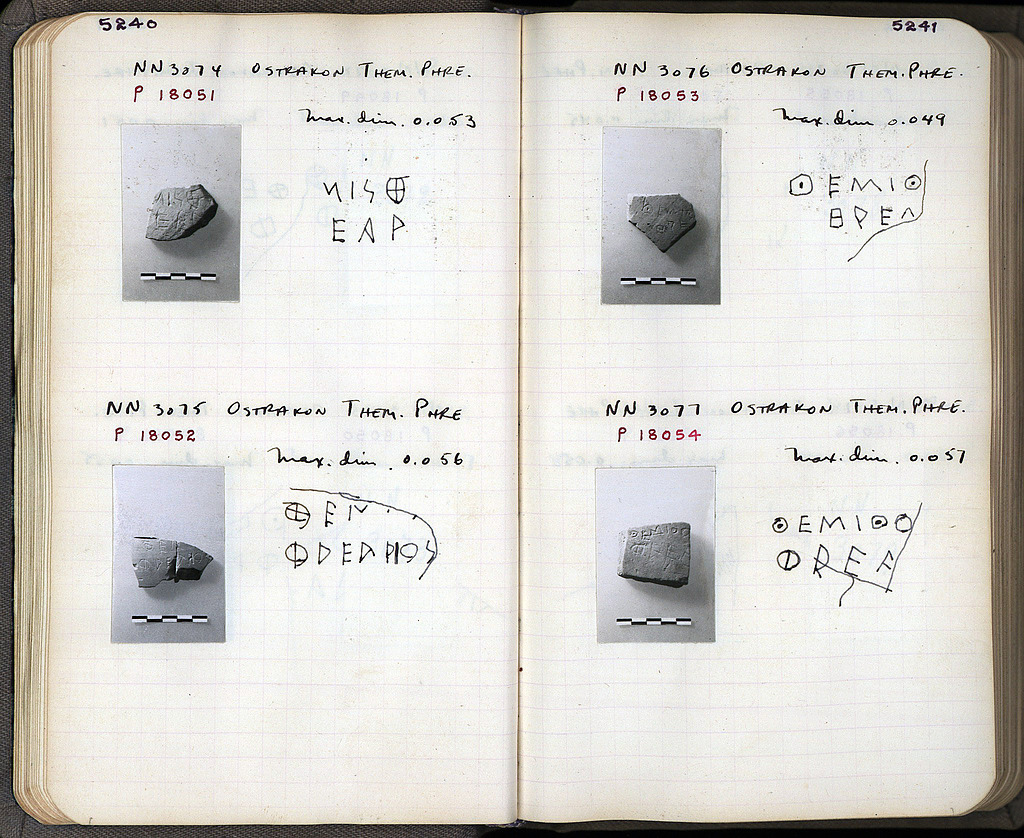 5240
NN 3074 OSTRAKON THEM. PHRE.
P 18051
Max. dim. 0.053
ΝΙSΘ
ΕΑΡ
NN 3075 OSTRAKON THEM. PHRE
P 18052
Max. dim. 0.056
ΘΕΝ
ΦΡΕΑΡΡΙΟS
5241
NN 3076 OSTRAKON THEM. PHRE.
P 18053
Max. dim 0.049
ΘΕΜΙΘ
ΦΡΕΑ
NN 3077 OSTRAKON THEM. PHRE.
P 18054
Max. dim. 0.057
ΘΕΜΙΘΟ
ΦRΕΑ